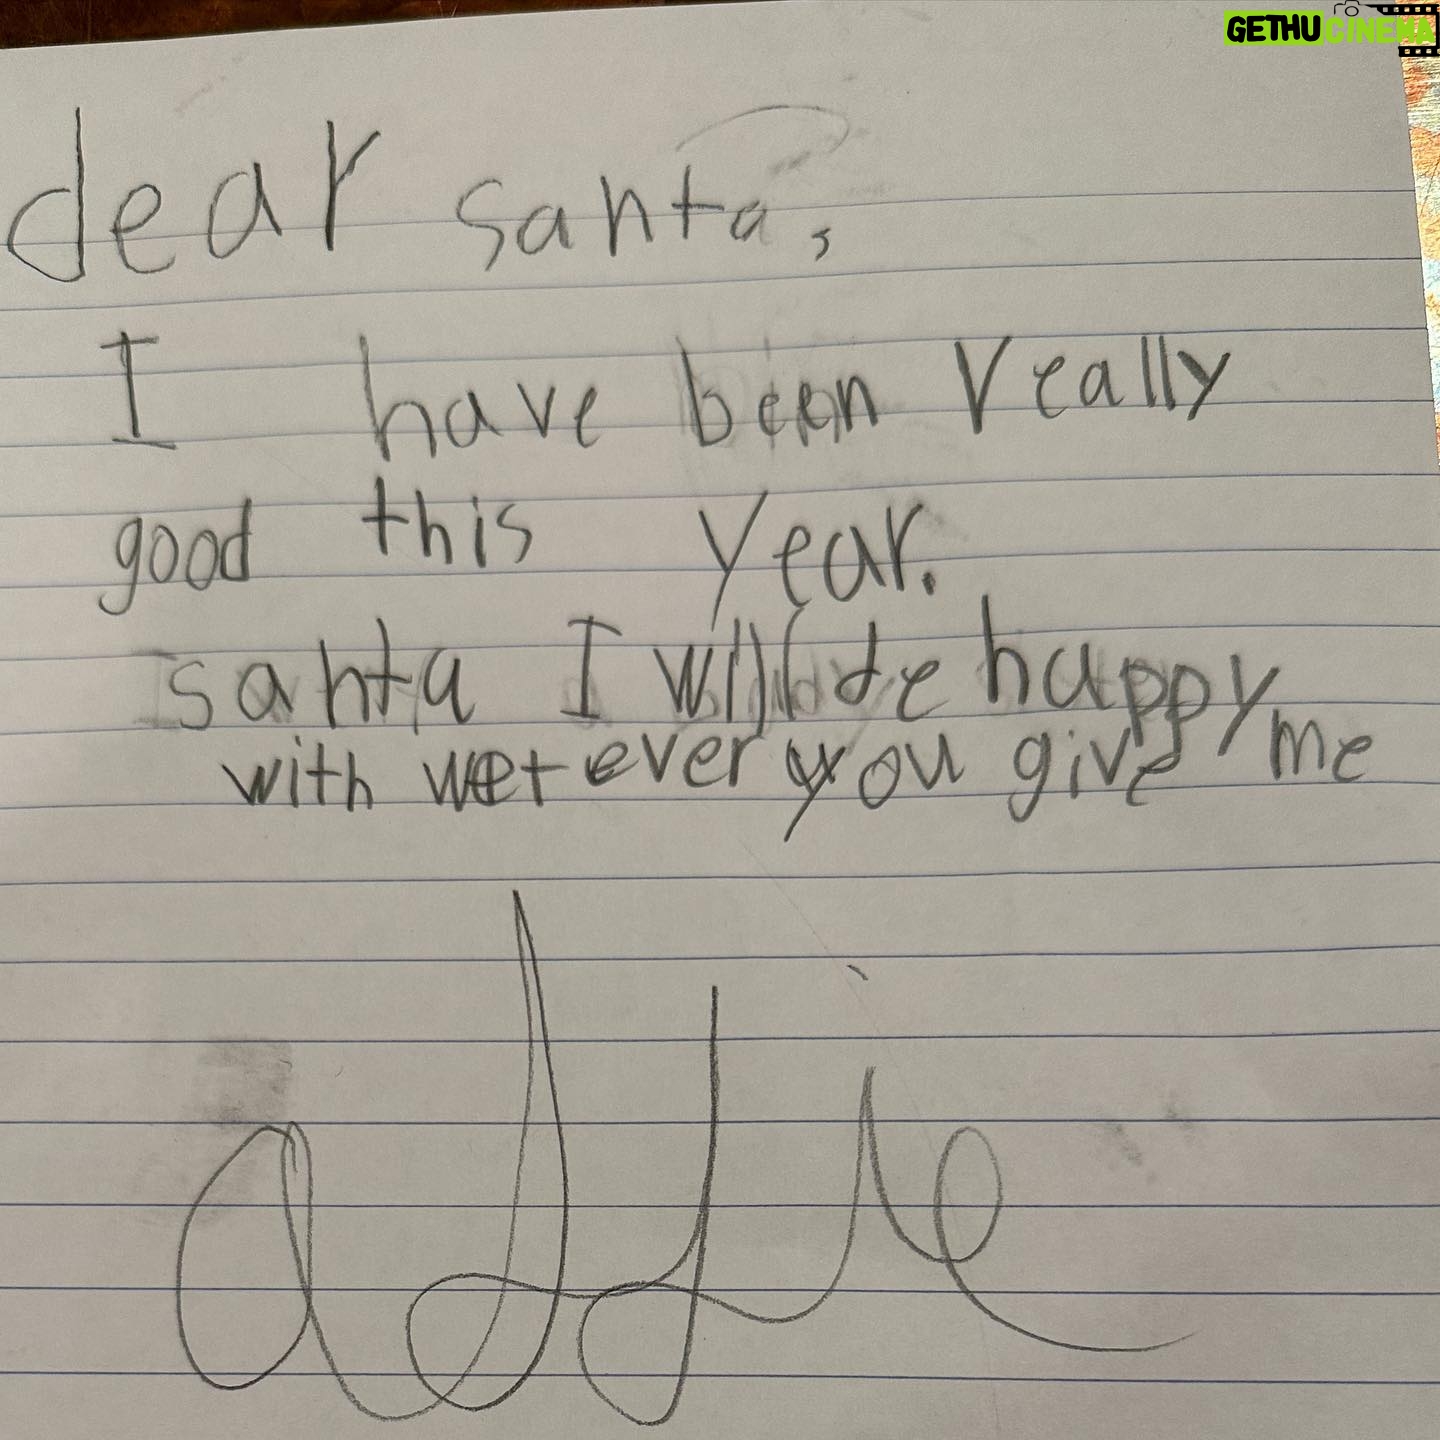 GETHUCINEMA
dear santa,
I have been really
good this year.
santa I will be happy
with wetever you give me
addie